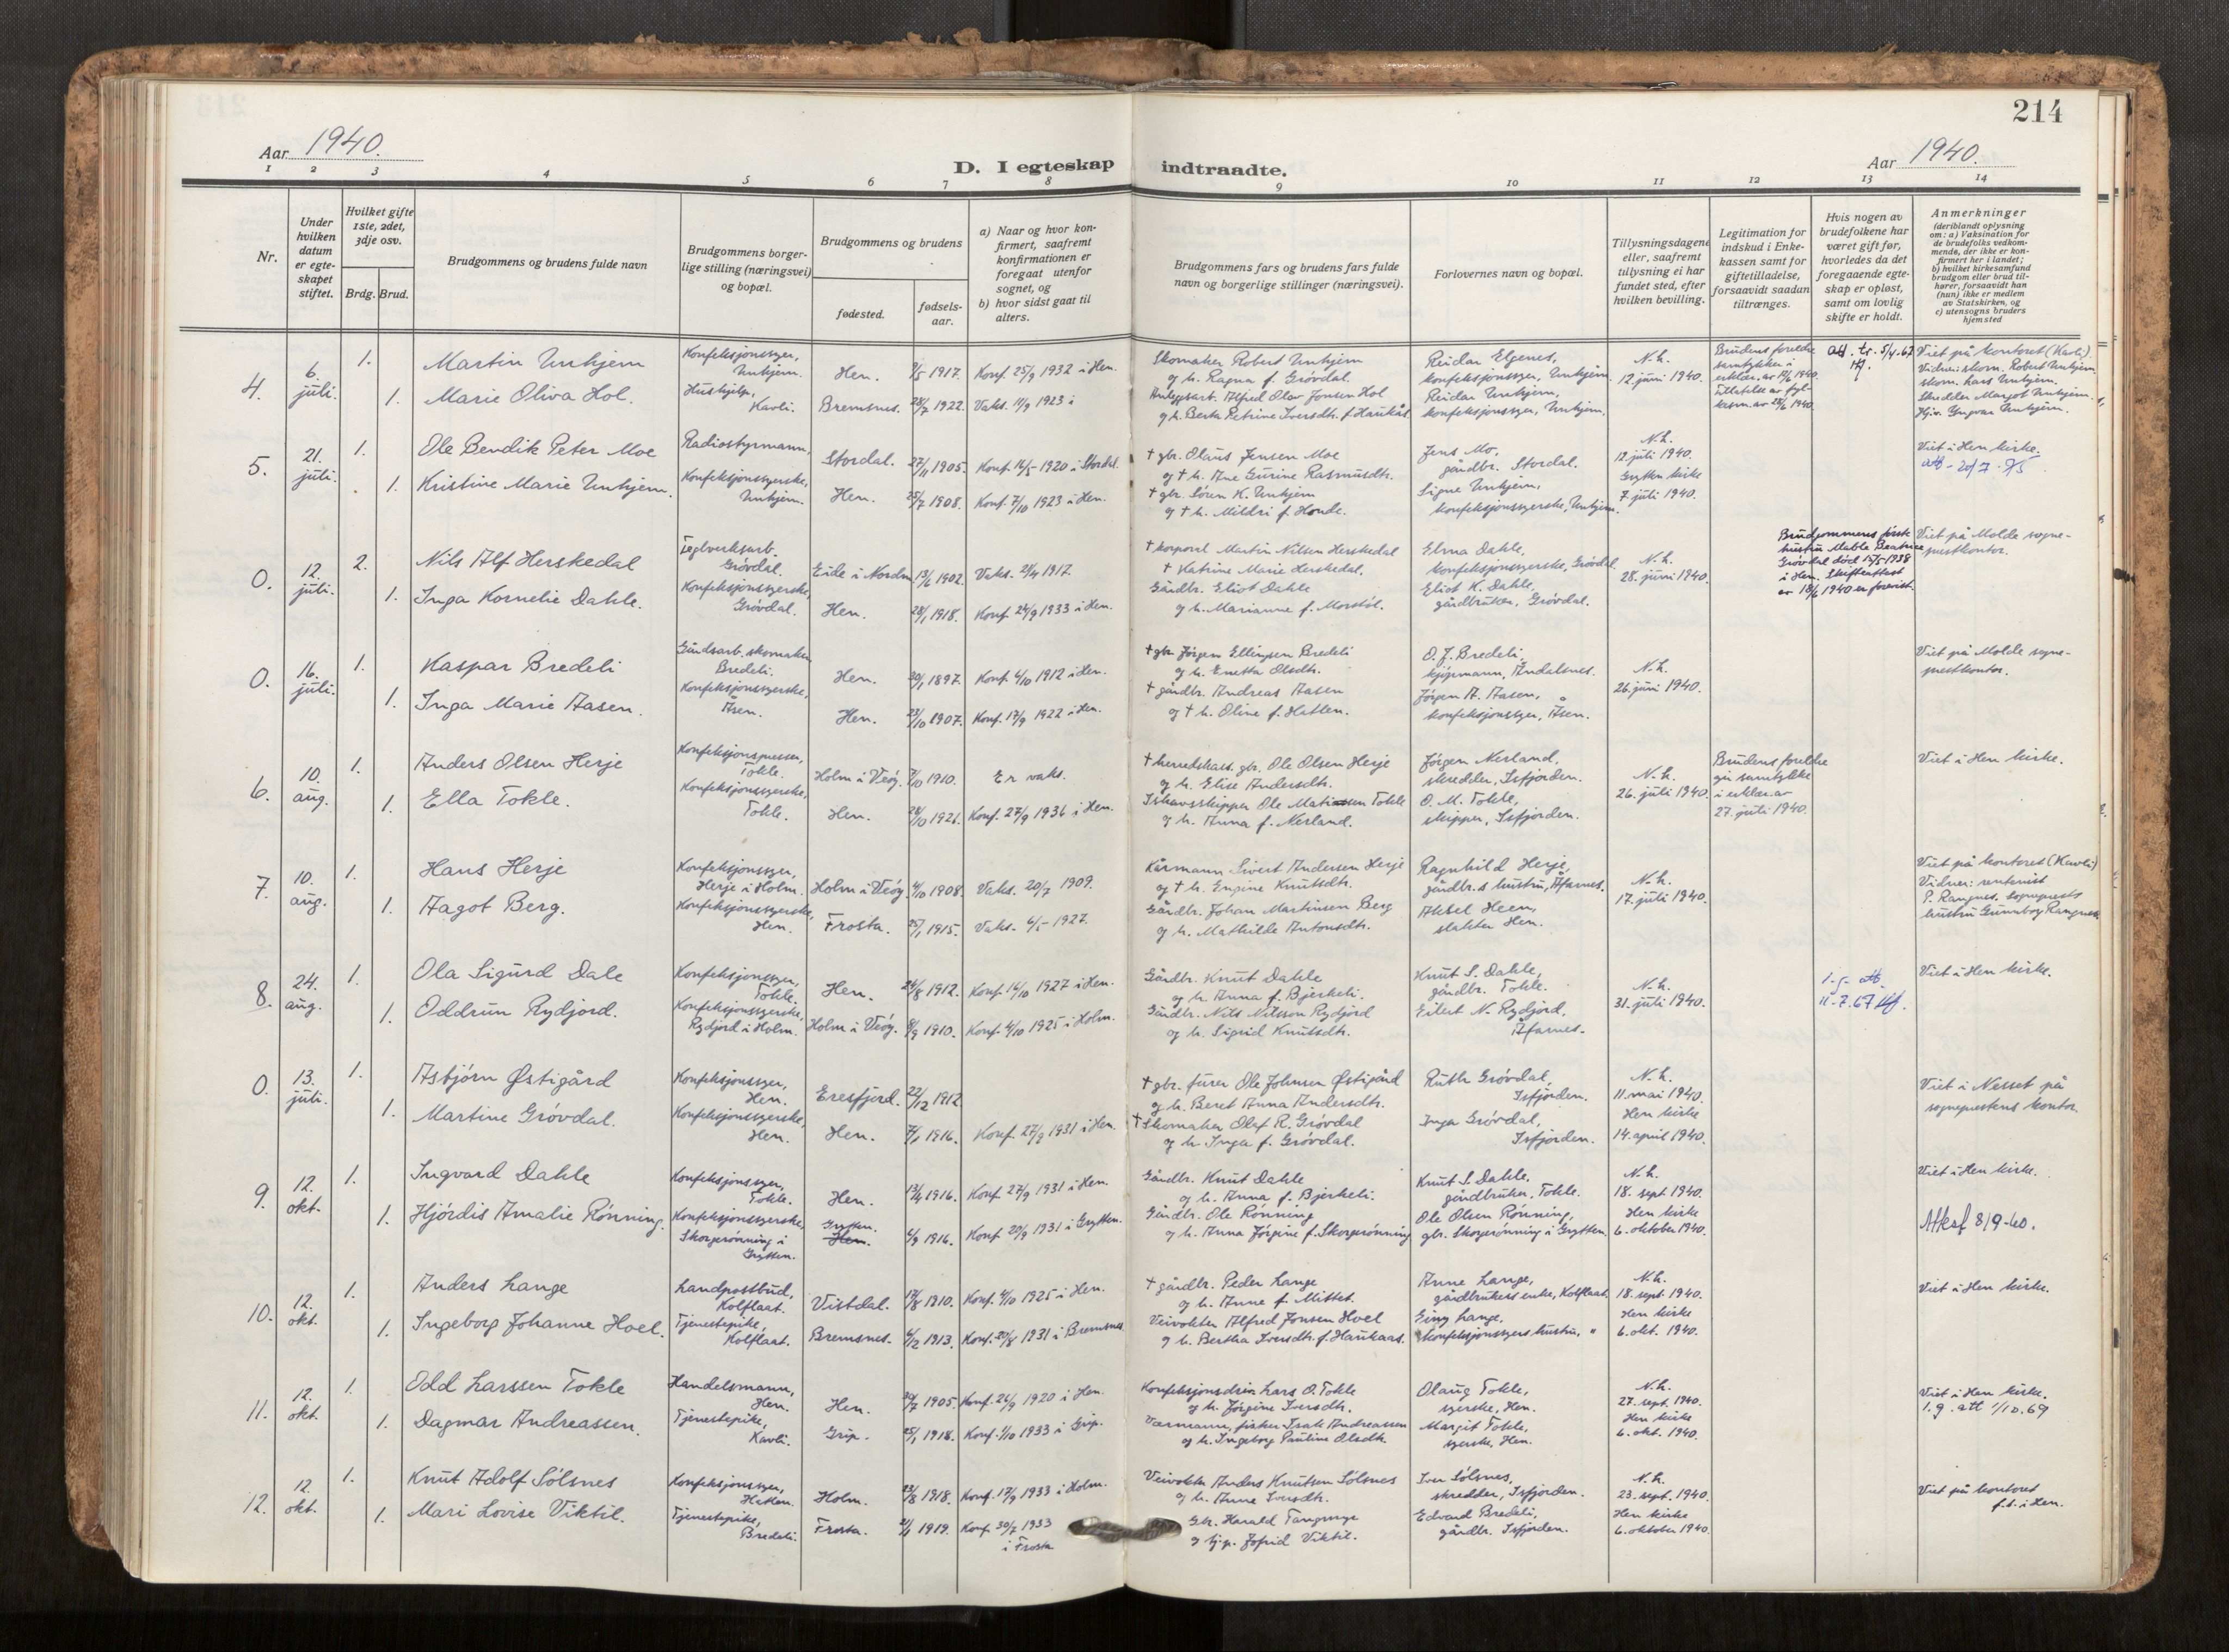 214
Aar 1940.
D. I egteskap indtraadte.
Aar 1940.
1 2 3 4 5 6 7 8 9 10 11 12 13 14
Nr.
Under hvilken datum er egteskapet stiftet.
Hvilket gifte 1ste, 2det, 3dje osv.
Brdg. Brud.
Brudgommens og brudens fulde navn
Brudgommens borgerlige stilling (næringsvei) og bopæl.
Brudgommens og brudens
fødested.
fødselsaar.
a) Naar og hvor konfirmert, saafremt konfirmationen er foregaat utenfor sognet, og
b) hvor sidst gaat til alters.
Brudgommens fars og brudens fars fulde navn og borgerlige stillinger (næringsvei).
Forlovernes navn og bopæl.
Tillysningsdagene eller, saafremt tillysning ei har fundet sted, efter hvilken bevilling.
Legitimation for indskud i Enkekassen samt for giftetilladelse, forsaavidt saadan tiltrænges.
Hvis nogen av brudefolkene har været gift før, hvorledes da det foregaaende egteskap er opløst, samt om lovlig skifte er holdt.
Anmerkninger (deriblandt oplysning om: a) Vaksination for de brudefolks vedkommende, der ikke er konfirmert her i landet; b) hvilket kirkesamfund brudgom eller brud tilhører, forsaavidt han (hun) ikke er medlem av Statskirken, og c) utensogns bruders hjemsted
4. 6. juli. 1. Martin Unhjem Konfeksjonssyer, Unhjem. Hen. 1917. Konf. 25/9 1932 i Hen.
Skomaker Robert Unhjem og h. Ragna f. Grövdal. Reidar Elgenes, konfeksjonssyer, Unhjem. N.h. 12. juni 1940.
Brudens foreldre samtykker i erklær. av 1940.
Viet på kontoret (Kavli). Vidner: skom. Robert Unhjem
1. Marie Oliva Hol. Hushjelp, Kavli. Bremsnes. 28/7 1922. Vaks. 11/9 1923
Alfred Olav Jonsen Hol og h. Berta Petrine Iversdtr. f. Haukås Reidar Unhjem, konfeksjonssyer, Unhjem.
skom. Lars Unhjem. Skredder Margot Unhjem. Yngvar Unhjem.
5. 21. juli. 1. Ole Bendik Peter Moe Radiostyrmann, Stordal. 27/11 1905. Konf. 16/5 1920 i Stordal.
† gbr. Olaus Jensen Moe og † h. Ane Gurine Rasmusdtr. Jens Mo, gårdbr. Stordal. N.h. 12. juli 1940.
Viet i Hen kirke.
1. Kristine Marie Unhjem. Konfeksjonssyerske, Unhjem. Hen. 25/7 1908. Konf. 7/10 1923 i Hen.
† gbr. Sören K. Unhjem og † h. Mildri f. Honde. Signe Unhjem, konfeksjonssyerske, Unhjem. Grytten kirke 7. juli 1940.
0. 12. juli. 2. Nils Alf Herskedal Teglverksarb. Grövdal. Eide i Nordm. 13/6 1902. Vaks. 21/4 1917.
† korporal Martin Nilsen Herskedal † Katrine Marie Herskedal. Elma Dahle, konfeksjonssyerske, Grövdal. N.h. 28. juni 1940.
Brudgommens første hustru Mable Beatrice Grövdal död 17/5-1938 i Hen. Skifteattest av 18/6 1940 er forevist.
Viet på Molde sogneprestkontor.
1. Inga Kornelie Dahle. Konfeksjonssyerske, Grövdal. Hen. 28/1 1918. Konf. 24/9 1933 i Hen.
Gårdbr. Eliot Dahle og h. Marianne f. Morstöl. Eliot K. Dahle, gårdbruker, Grövdal.
0. 16. juli. 1. Kaspar Bredeli skomaker Bredeli. Hen. 1897. Konf. 6/10 1912 i Hen.
† gbr. Jörgen Ellingsen Bredeli og h. Enetta Olsdtr. O. J. Bredeli, kjöpmann, Åndalsnes. N.h. 26. juni 1940.
Viet på Molde sogneprestkontor.
1. Inga Marie Aasen. Konfeksjonssyerske, Åsen. Hen. 23/10 1907. Konf. 17/9 1922 i Hen.
† gårdbr. Andreas Aasen og † h. Oline f. Hatlen. Jörgen A. Aasen, konfeksjonssyer, Åsen.
6. 10. aug. 1. Anders Olsen Herje Konfeksjonspresser, Tokle. Holm i Veöy. 7/10 1910. Er vaks.
† herredskass. gbr. Ole Olsen Herje og h. Elise Andersdtr. Jörgen Nerland, skredder, Isfjorden. N.h. 26. juli 1940.
Brudens foreldre gir samtykke i erklær. av 27. juli 1940.
Viet i Hen kirke.
1. Ella Tokle. Konfeksjonssyerske, Tokle. Hen. 1921. Konf. 27/9 1936 i Hen.
Ishavsskipper Ole Tokle og h. Anna f. Nerland. O. M. Tokle, skipper, Isfjorden.
7. 10. aug. 1. Hans Herje Konfeksjonssyer, Herje i Holm. Holm i Veöy. 4/10 1908. Vaks. 20/7 1909.
Kårmann Sivert Andersen Herje og † h. Engine Knutsdtr. Ragnhild Herje, gårdbr.s hustru, Åfarnes. N.h. 17. juli 1940.
Viet på kontoret (Kavli) Vidner: rentenist P. Rangnes, sogneprests hustru Gunnbor Rangnes
1. Aagot Berg. Konfeksjonssyerske, Hen. Frosta. 25/1 1915. Vaks. 6/5-1927.
Gårdbr. Johan Martinsen Berg og h. Mathilde Antonsdtr. Aksel Heen, slakter Hen.
8. 24. aug. 1. Ola Sigurd Dale Konfeksjonssyer, Tokle. Hen. 24/8 1912. Konf. 16/10 1927 i Hen.
Gårdbr. Knut Dahle og h. Anna f. Bjerkeli. Knut S. Dahle, gårdbr. Tokle. N.h. 31. juli 1940.
11-7.67
Viet i Hen kirke.
1. Oddrun Rydjord. Konfeksjonssyerske, Rydjord i Holm. Holm i Veöy. 1910. Konf. 4/10 1925 i Holm.
Gårdbr. Nils Nilsson Rydjord og h. Sigrid Knutsdtr. Eilert N. Rydjord, Åfarnes.
0. 13. juli. 1. Asbjörn Østigård Konfeksjonssyer, Hen. Eresfjord. 22/12 1912.
† gbr. Ole Johnsen Østigård og h. Beret Anna Andersdtr. Ruth Grövdal, Isfjorden. N.h. 11. mai 1940.
Viet i Nesset på sogneprestens kontor.
1. Martine Grövdal. Konfeksjonssyerske, Hen. Hen. 7/1 1916. Konf. 27/9 1931 i Hen.
† Skomaker Olaf R. Grövdal og h. Inga f. Grövdal. Inga Grövdal, Isfjorden. Hen kirke 14. april 1940.
9. 12. okt. 1. Ingvard Dahle Konfeksjonssyer, Tokle. Hen. 13/4 1916. Konf. 27/9 1931 i Hen.
Gårdbr. Knut Dahle og h. Anna f. Bjerkeli. Knut S. Dahle, gårdbruker, Tokle. N.h. 18. sept. 1940.
Viet i Hen kirke.
1. Hjördis Amalie Rönning. Konfeksjonssyerske, Skorgerönning i Grytten. Grytten. Hen. 6/9 1916. Konf. 20/9 1931 i Grytten.
Gårdbr. Ole Rönning og h. Anna Jörgine f. Skorgerönning Ole Olsen Rönning, gbr. Skorgerönning i Grytten. Hen kirke 6. oktober 1940.
Attesf 8/9-60.
10. 12. okt. 1. Anders Lange Landpostbud, Kolflaat. Vistdal. 1910. Konf. 4/10 1925 i Hen.
† gårdbr. Peder Lange og h. Anne f. Mittet. Anne Lange, gårdbrukers enke, Kolflaat. N.h. 18. sept. 1940.
Viet i Hen kirke.
1. Ingeborg Johanne Hoel. Tjenestepike, Kolflaat. Bremsnes. 6/2 1913. Konf. 20/8 1931 i Bremsnes
Veivokter Alfred Jonsen Hoel og h. Bertha Iversdtr. f. Haukaas. Einy Lange, konfeksjonssyers hustru, " Hen kirke 6. okt. 1940.
11. 12. okt. 1. Odd Larssen Tokle Handelsmann, Hen. Hen. 1905. Konf. 26/9 1920 i Hen.
Konfeksjonsdriv. Lars O. Tokle og h. Jörgine Iversdtr. Olaug Tokle, syerske, Hen. N.h. 27. sept. 1940.
Viet i Hen kirke. 1.g. att 1/10.69
1. Dagmar Andreassen. Tjenestepike, Kavli. Grip. 25/1 1918. Konf. 1/10 1933 i Grip.
Værmann, fisker Isak Andreassen og h. Ingeborg Pauline Olsdtr. Margit Tokle, syerske, Hen. Hen kirke 6. okt. 1940.
12. 12. okt. 1. Knut Adolf Sölsnes Konfeksjonssyer, Hatlen. Holm. 23/8 1918. Konf. 17/9 1933 i Holm.
Veivokter Anders Knutsen Sölsnes og h. Anne Iversdtr. Iver Sölsnes, skredder, Isfjorden. N.h. 23. sept. 1940.
Viet på kontoret f.t. i Hen.
1. Mari Lovise Viktil. Tjenestepike, Bredeli. Frosta. 1919. Konf. 30/7 1933 i Frosta
Gbr. Harald og Viktil. Edvard Bredeli, gårdbr. Isfjorden. Hen kirke 6. oktober 1940.